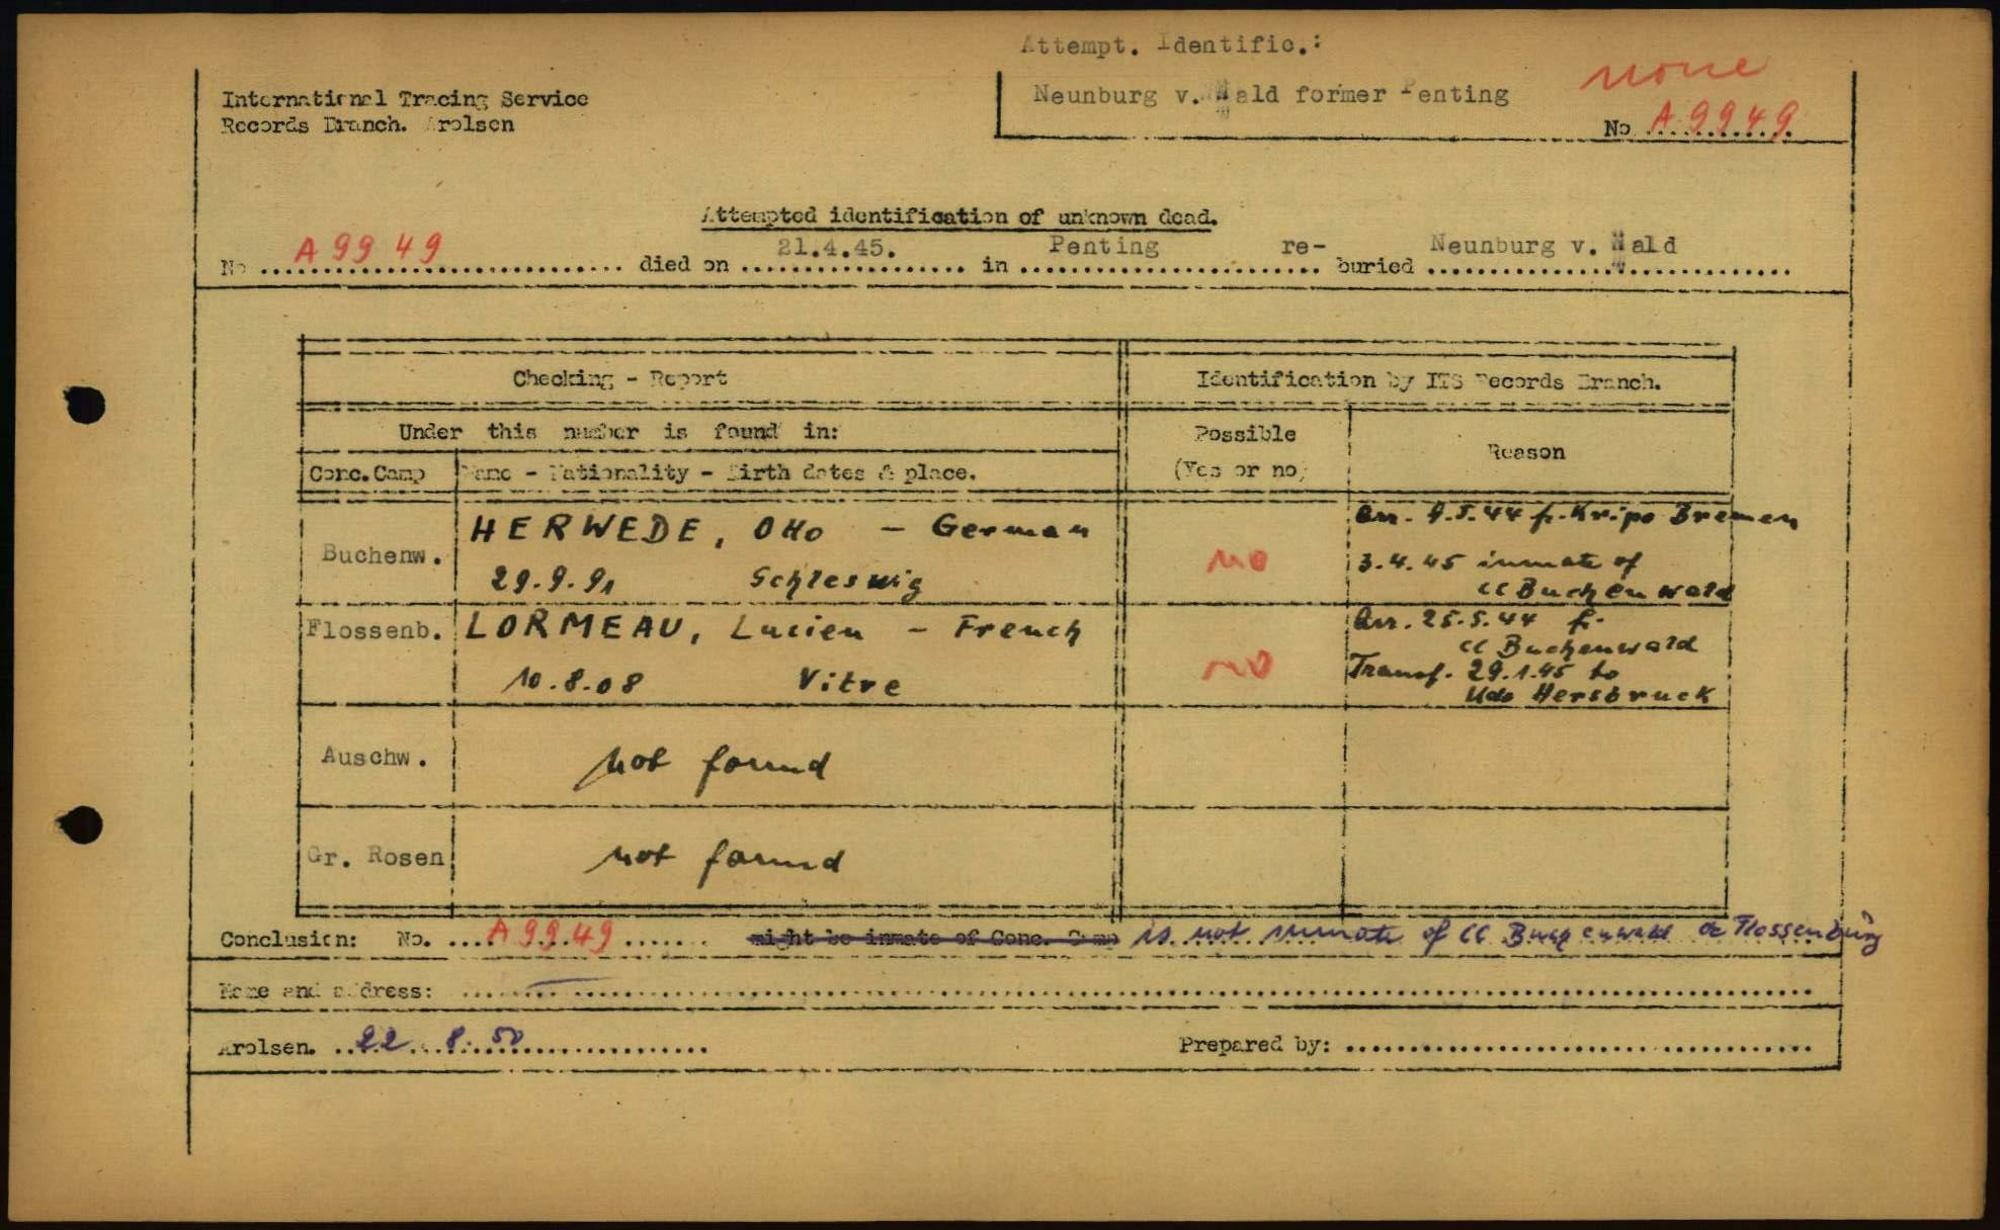 Attempt. Identific.:
none
International Tracing Service
Records Branch. Arolsen
Neunburg v. Wald former Penting
No A 9949
Attempted identification of unknown dead.
No A 9949 died on 21.4.45. in Penting re-buried Neunburg v. Wald
Checking - Report
Identification by ITS Records Branch.
Under this number is found in:
Possible
(Yes or no)
Reason
Conc. Camp Name - Nationality - Birth dates & place.
Buchenw. HERWEDE, Otto - German
29.9.91 Schleswig
no
Arr. 4.5.44 fr. Kripo Bremen
3.4.45 inmate of
CC Buchenwald
Flossenb. LORMEAU, Lucien - French
10.8.08 Vitre
no
Arr. 25.5.44 fr.
CC Buchenwald
Transf. 29.1.45 to
Kdo Hersbruck
Auschw. not found
Gr. Rosen not found
Conclusion: No. A 9949 might be inmate of Conc. Camp is not inmate of CC Buchenwald or Flossenbürg
Name and address:
Arolsen. 22. 8. 50 Prepared by: